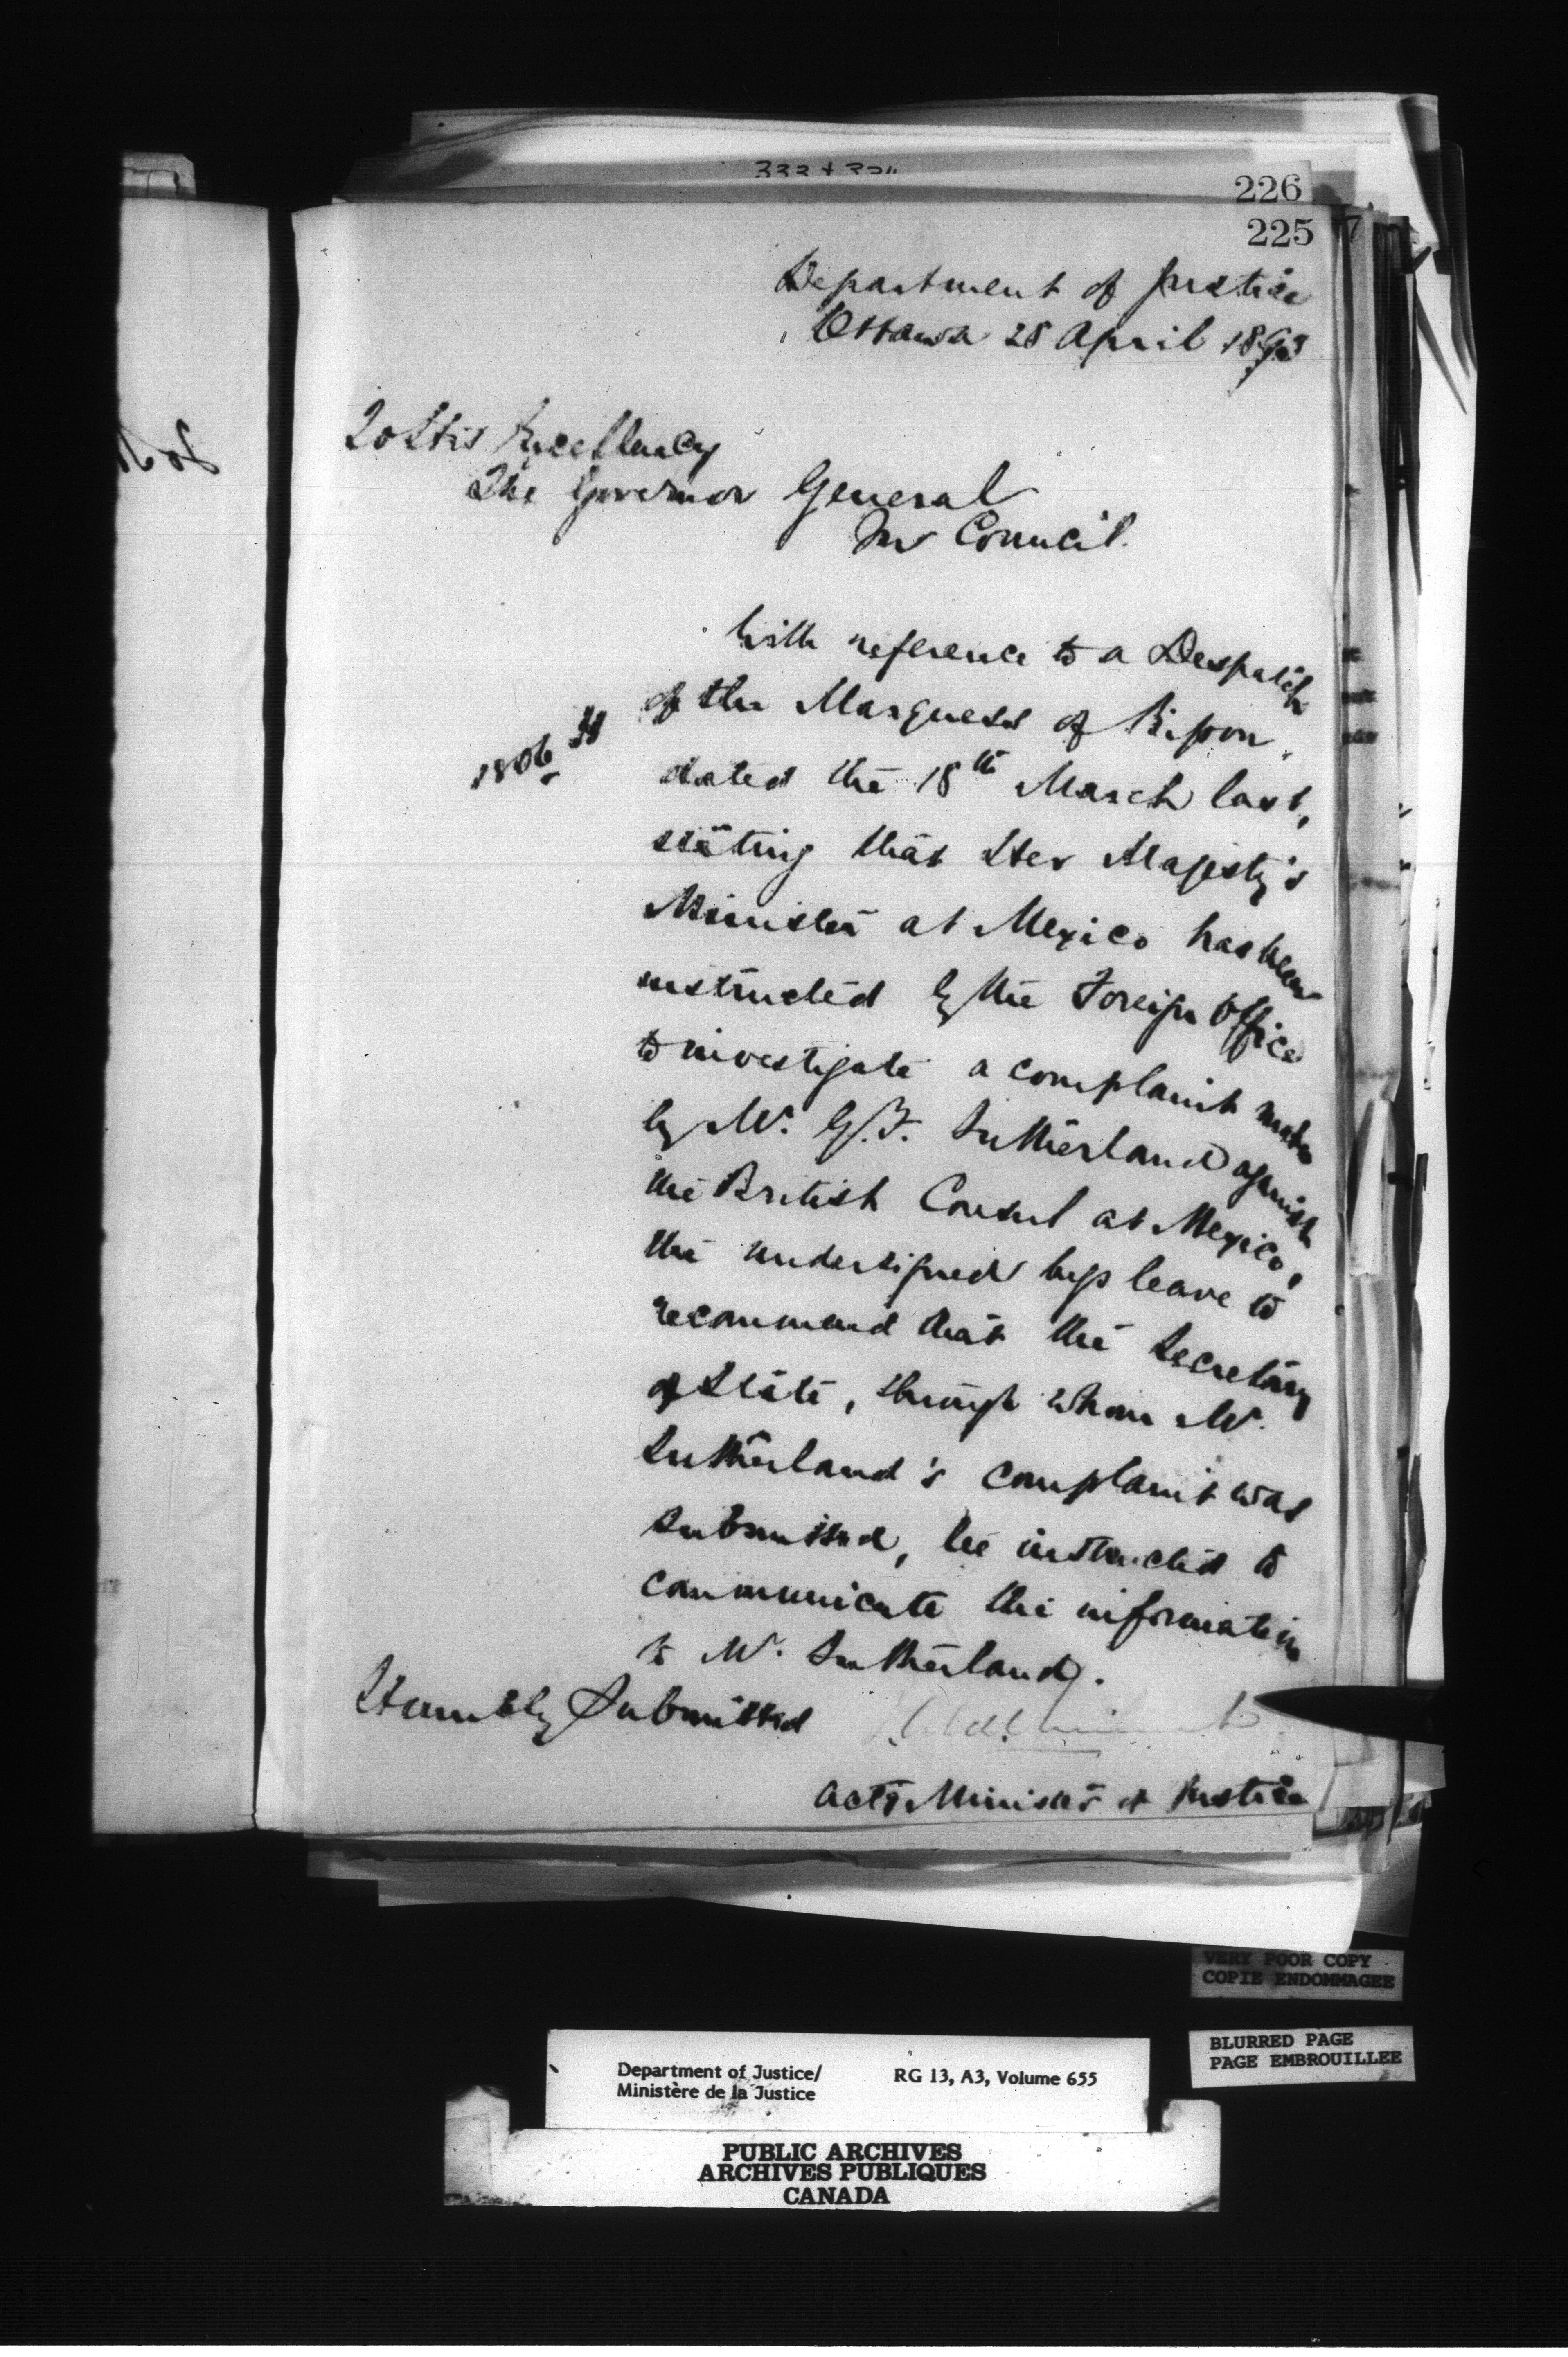 226
225
Department of Justice
Ottawa 28 April 1893
To His Excellency
The Governor General
In Council.
With reference to a Despatch
of the Marquess of Ripon,
1806 H
dated the 18th March last,
stating that Her Majesty's
Minister at Mexico has been
instructed by the Foreign Office
to investigate a complaint made
by Mr. G. F. Sutherland against
the British Consul at Mexico,
the undersigned begs leave to
recommend that the Secretary
of State, through whom Mr.
Sutherland's complaint was
submitted, be instructed to
communicate the information
to Mr. Sutherland.
Humbly Submitted
Actg Minister of Justice
VERY POOR COPY
COPIE ENDOMMAGEE
BLURRED PAGE
PAGE EMBROUILLEE
Department of Justice/ RG 13, A3, Volume 655
Ministère de la Justice
PUBLIC ARCHIVES
ARCHIVES PUBLIQUES
CANADA